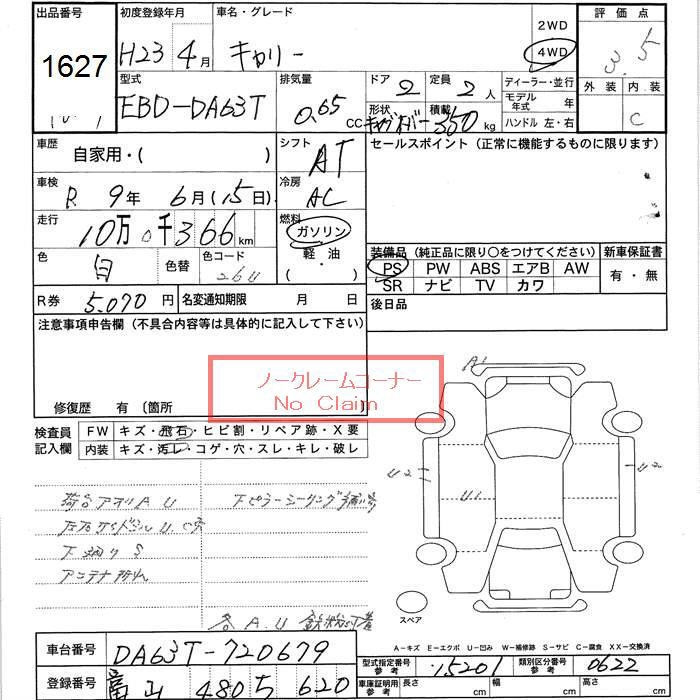 出品番号 初度登録年月 車名・グレード 2WD 評価点
1627 H23 4月 キャリー 4WD 3.5
型式 排気量 ドア 2 定員 2人 ディーラー・並行 外装 内装
EBD-DA63T 0.65 CC 形状 積載 350 kg モデル年式 年 C
ハンドル 左・右
車歴 自家用・( ) シフト AT セールスポイント (正常に機能するものに限ります)
車検 R 9年 6月(15日) 冷房 AC
走行 10万 0千366km 燃料 ガソリン
軽・油
( )
色 白 色替 色コード 26U
装備品 (純正品に限り○をつけてください) 新車保証書
PS PW ABS エアB AW 有・無
SR ナビ TV カワ
R券 5.070円 名変通知期限 月 日 後日品
注意事項申告欄 (不具合内容等は具体的に記入して下さい)
ノークレームコーナー
No Claim
修復歴 有 〔箇所 〕
検査員記入欄 FW キズ・飛石・ヒビ割・リペア跡・X要
内装 キズ・汚レ・コゲ・穴・スレ・キレ・破レ
A1
U2 U1 U2
荷台アオリ A U 下ピラーシーリング
下廻り S
アンテナ
各 A.U 鉄粉付着
スペア
A-キズ E-エクボ U-凹み W-補修跡 S-サビ C-腐食 XX-交換済
車台番号 DA63T-720679
型式指定番号 参考 15201 類別区分番号 参考 0622
登録番号 富山 480 ち 620
車庫証明用 参考 長さ cm 幅 cm 高さ cm